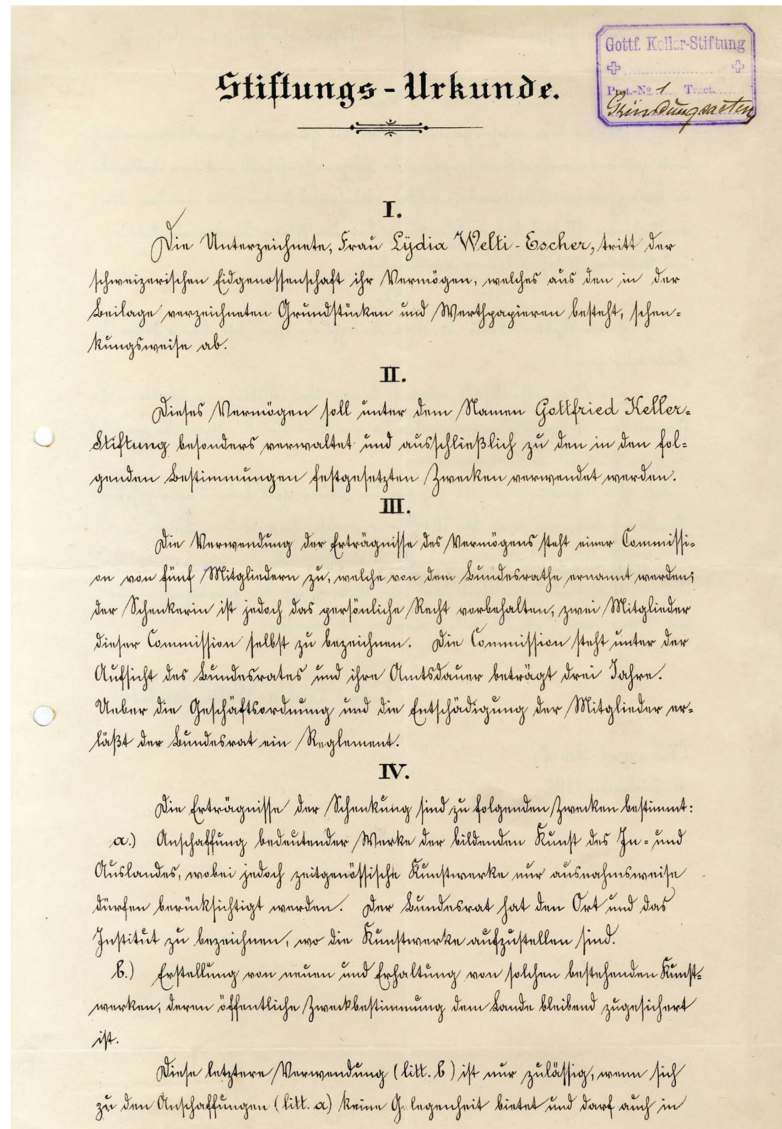 Gottf. Keller-Stiftung
Prot.-No 1 Tract.
Gründungsakten
Stiftungs-Urkunde.
I.
Die Unterzeichnete, Frau Lydia Welti-Escher, tritt der
schweizerischen Eidgenossenschaft ihr Vermögen, welches aus den in der
Beilage verzeichneten Grundstücken und Werthpapieren besteht, schen-
kungsweise ab.
II.
Dieses Vermögen soll unter dem Namen Gottfried Keller-
Stiftung besonders verwaltet und ausschließlich zu den in den fol-
genden Bestimmungen festgesetzten Zwecken verwendet werden.
III.
Die Verwendung der Erträgnisse des Vermögens steht einer Commissi-
on von fünf Mitgliedern zu, welche von dem Bundesrathe ernannt werden;
der Schenkerin ist jedoch das persönliche Recht vorbehalten, zwei Mitglieder
dieser Commission selbst zu bezeichnen. Die Commission steht unter der
Aufsicht des Bundesrates und ihre Amtsdauer beträgt drei Jahre.
Ueber die Geschäftsordnung und die Entschädigung der Mitglieder er-
läßt der Bundesrat ein Reglement.
IV.
Die Erträgnisse der Schenkung sind zu folgenden Zwecken bestimmt:
a.) Anschaffung bedeutender Werke der bildenden Kunst des In- und
Auslandes, wobei jedoch zeitgenössische Kunstwerke nur ausnahmsweise
dürfen berücksichtigt werden. Der Bundesrat hat den Ort und das
Institut zu bezeichnen, wo die Kunstwerke aufzustellen sind.
b.) Erstellung von neuen und Erhaltung von solchen bestehenden Kunst-
werken, deren öffentliche Zweckbestimmung dem Lande bleibend zugesichert
ist.
Diese letztere Verwendung (litt. b) ist nur zulässig, wenn sich
zu den Anschaffungen (litt. a) keine Gelegenheit bietet und darf auch in